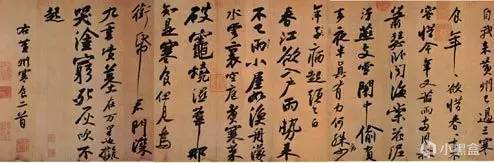 自我来黄州已過三寒
食年々欲惜春々去不
容惜今年又苦雨兩月秋
蕭瑟卧聞海棠花泥
汙燕支雪闇中偷負
去夜半真有力何殊病少
年子病起頭已白
春江欲入户雨勢来
不已雨小屋如漁舟濛々
水雲裏空庖煮寒菜
破竈燒濕葦那
知是寒食但見烏
銜帋君門深
九重墳墓在万里也擬
哭塗窮死灰吹不
起
右黄州寒食二首
小黑盒